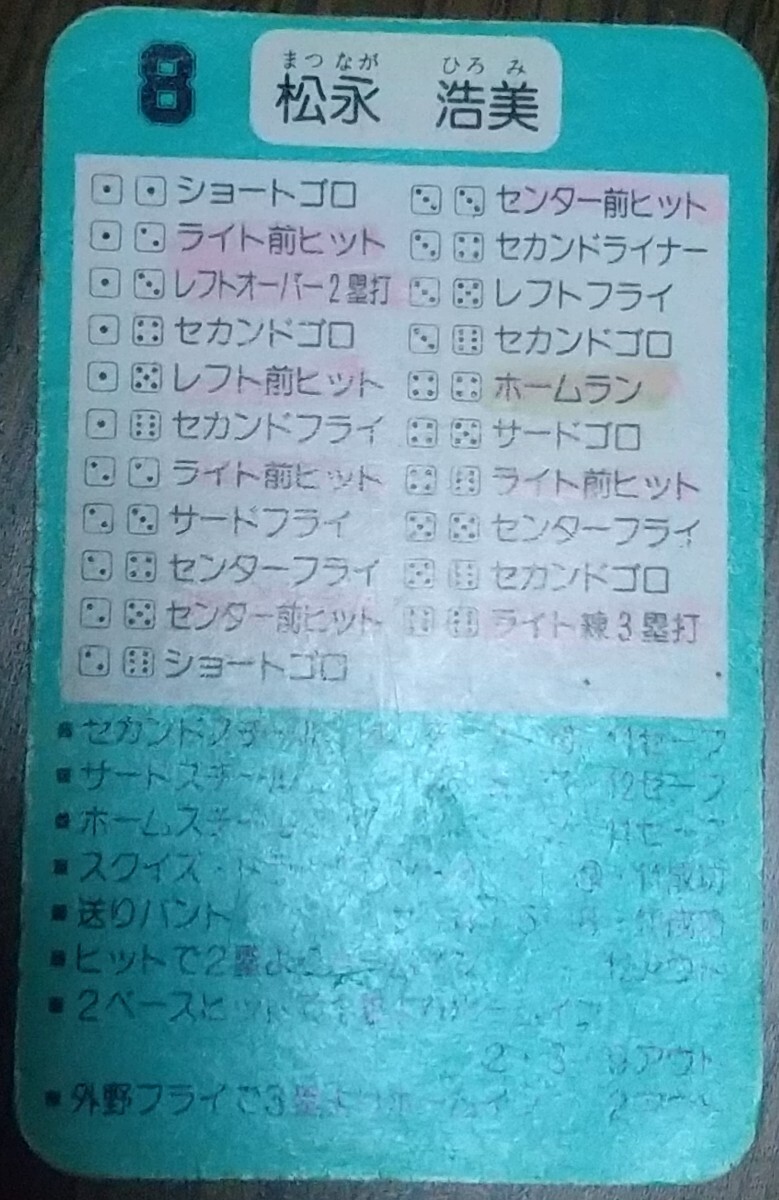 8
まつ なが ひろ み
松永 浩美
ショートゴロ
ライト前ヒット
レフトオーバー2塁打
セカンドゴロ
レフト前ヒット
セカンドフライ
ライト前ヒット
サードフライ
センターフライ
センター前ヒット
ショートゴロ
センター前ヒット
セカンドライナー
レフトフライ
セカンドゴロ
ホームラン
サードゴロ
ライト前ヒット
センターフライ
セカンドゴロ
ライト線3塁打
セカンドスチール 11セーフ
サードスチール 12セーフ
ホームスチール 11セーフ
スクイズ 11成功
送りバント 成功
ヒットで2塁より 12アウト
2ベースヒットで1塁
2・3 アウト
外野フライで3塁よりホームイン